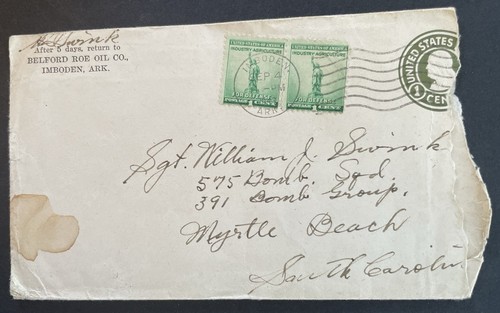 Swink
After 5 days, return to
BELFORD ROE OIL CO.,
IMBODEN, ARK.
UNITED STATES OF AMERICA
INDUSTRY AGRICULTURE
FOR DEFENSE
POSTAGE 1 CENT
UNITED STATES OF AMERICA
INDUSTRY AGRICULTURE
FOR DEFENSE
POSTAGE 1 CENT
IMBODEN
ARK
UNITED STATES
1 CEN
Sgt. William J. Swink
575 Bomb. Sqd.
391 Bomb Group,
Myrtle Beach
South Carolin